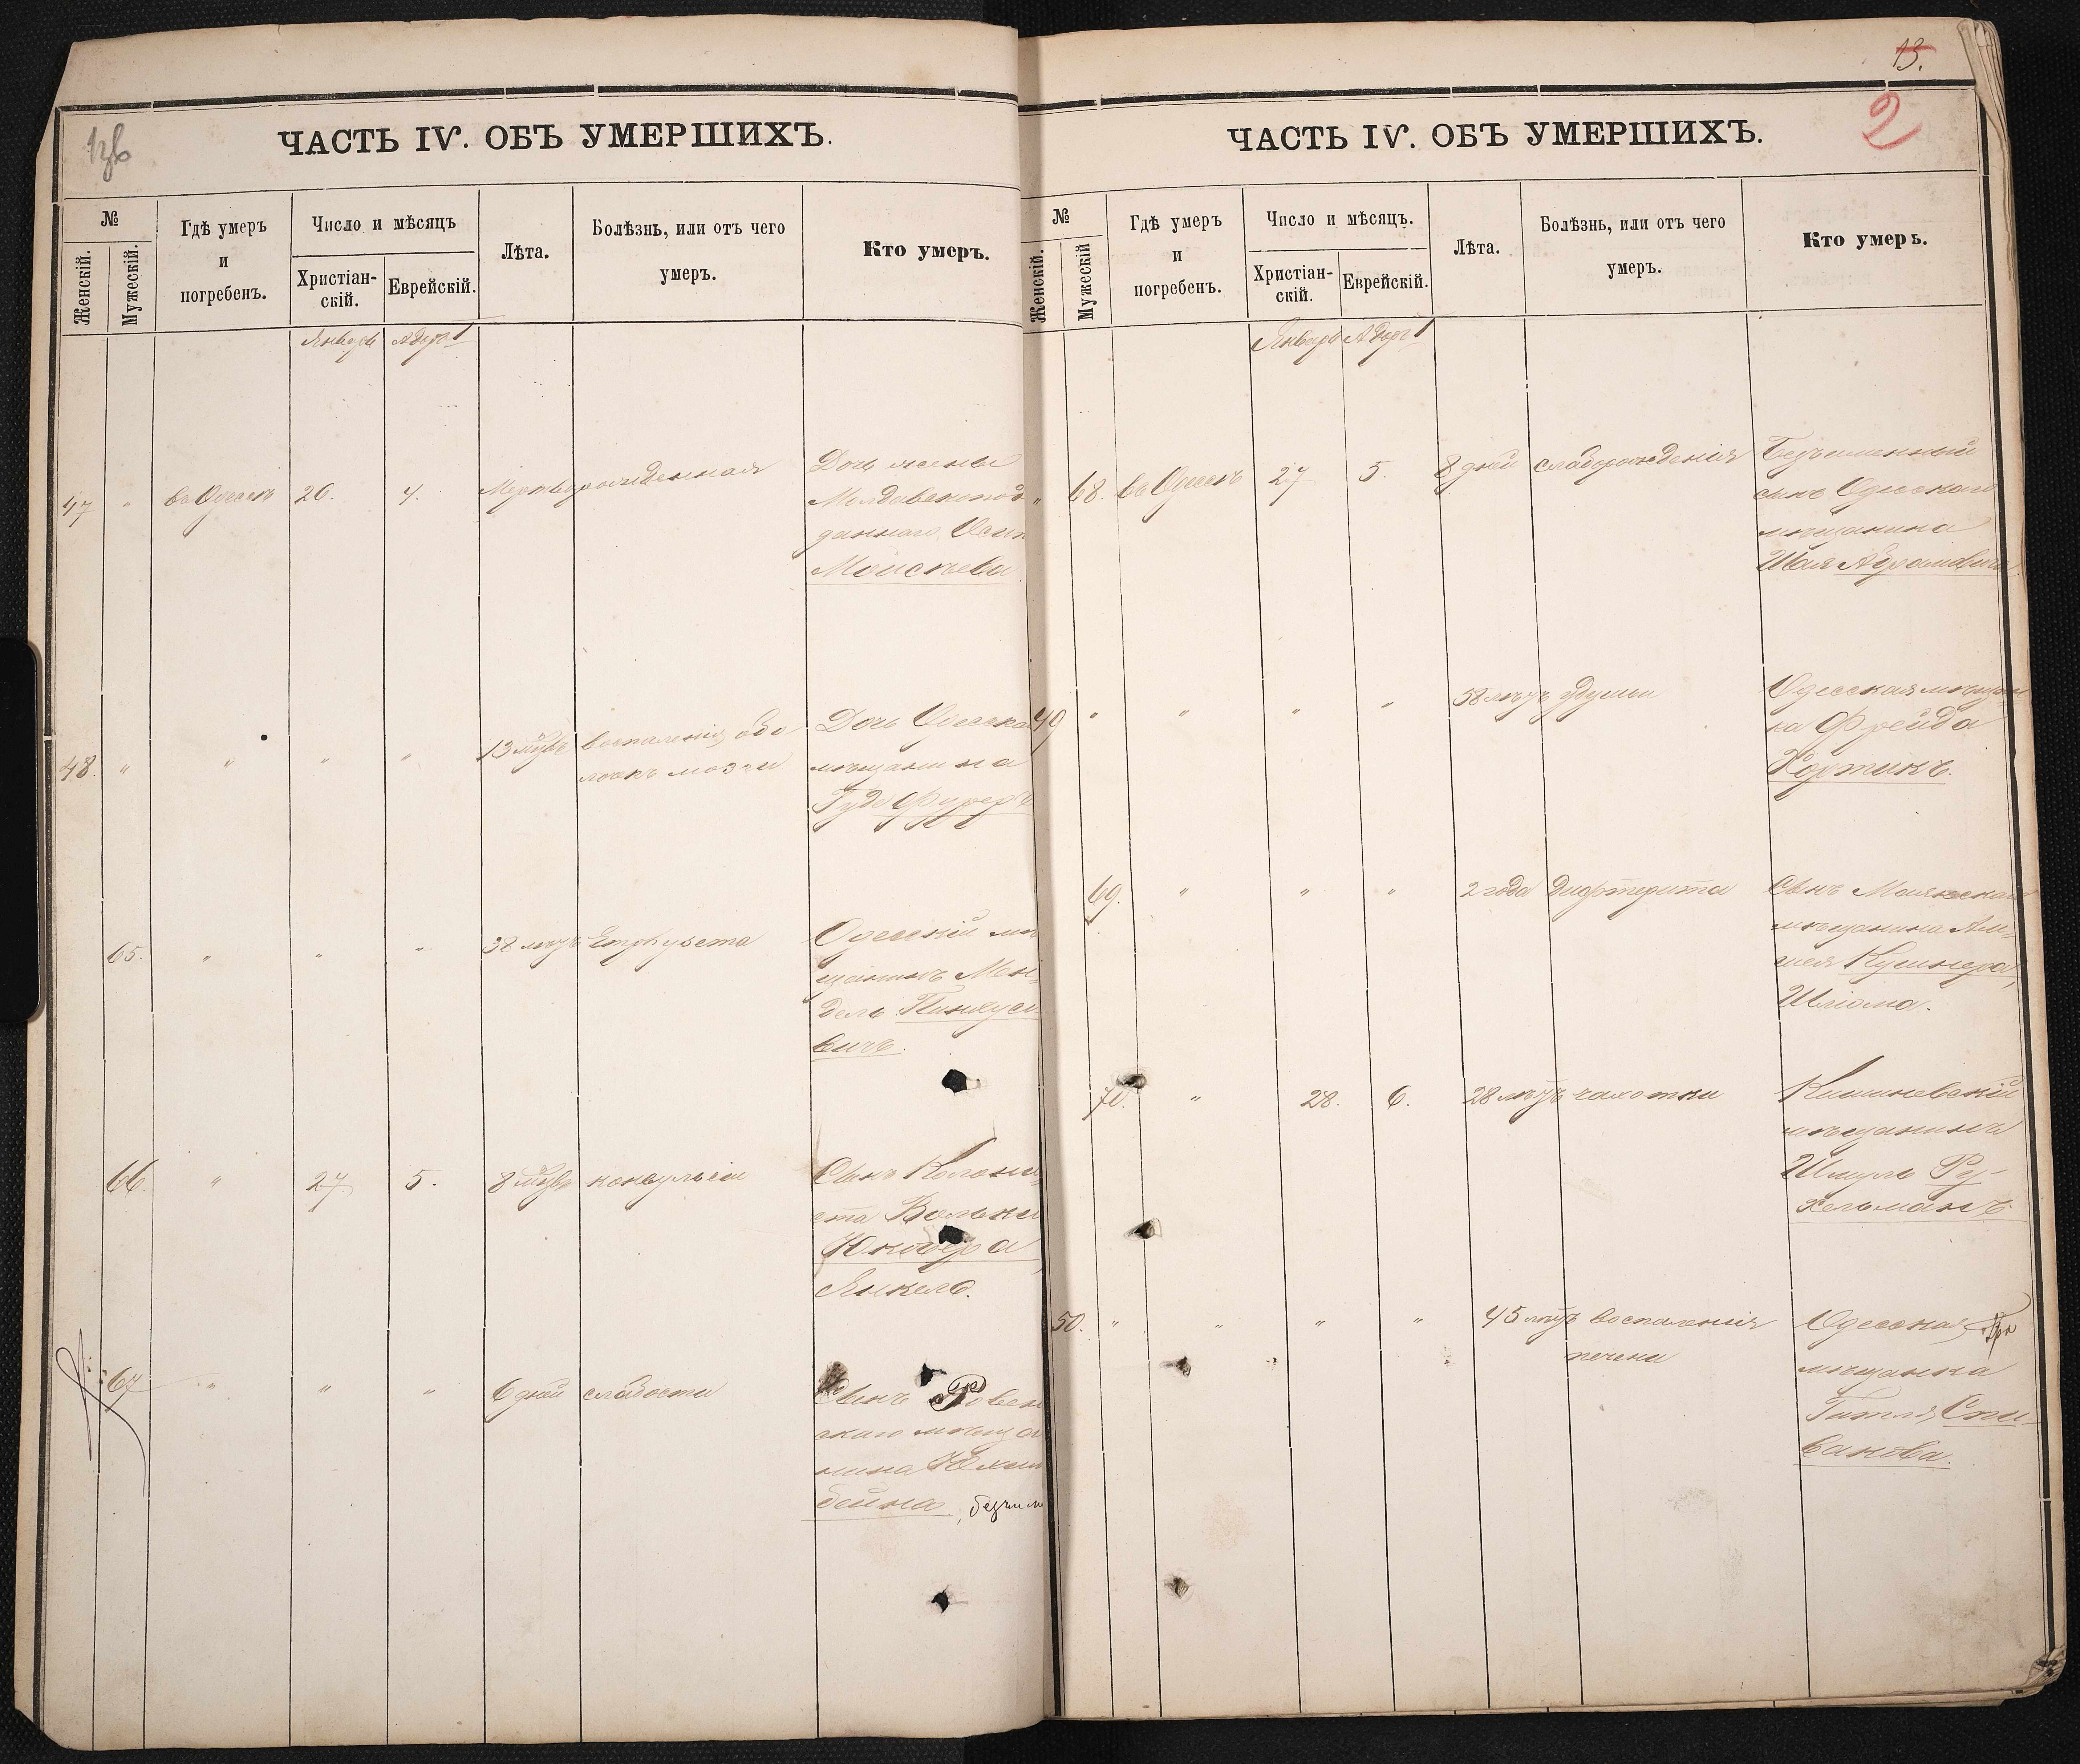 ЧАСТЬ IV. ОБЪ УМЕРШИХЪ.
№
Женскій.
Мужескій.
Гдѣ умеръ
и
погребенъ.
Число и мѣсяцъ
Христіан-
скій.
Еврейскій.
Лѣта.
Болѣзнь, или отъ чего
умеръ.
Кто умеръ.
Январь
47 " въ Одессѣ 26. 4. Мертворожденная
Дочь жены
Молдавскопод
даннаго
Моисѣева
48. " " " " 13 воспаленія обо-
лочк мозги
Дочь Одесска
мѣщанина
65. " " " 38 лѣтъ
Одесскій мѣ
щанинъ Мен-
дель Пинкусо
вичъ.
66. " 27. 5. 8 конвульсіи
Сынъ Колони-
ста
Янкель.
67 " " " 6 дней слабости
Сынъ Ровен
скаго мѣща
нина
бейна, безъим
13.
2
ЧАСТЬ IV. ОБЪ УМЕРШИХЪ.
№
Женскій.
Мужескій
Гдѣ умеръ
и
погребенъ.
Число и мѣсяцъ.
Христіан-
скій.
Еврейскій.
Лѣта.
Болѣзнь, или отъ чего
умеръ.
Кто умеръ.
Январь
" 68. въ Одессѣ 27 5. 8 дней слаборожденія
Безъименный
сынъ Одесскаго
мѣщанина
Шая Абрамовича
49 " " " " 58 лѣтъ удушья
Одесская мѣщан-
ка Фрейда
Хортикъ.
69. " " " 2 года Дифтерита
Сынъ Маякскаго
мѣщанина
Кушнера,
Шлiома.
70. " 28. 6. 28 лѣтъ чахотки
Кишиневскій
мѣщанинъ
Шмуль
хельманъ
50. " " " " 45 лѣтъ воспаленія
печени
Одесская
мѣщанка
Гитля Спи-
вакова.